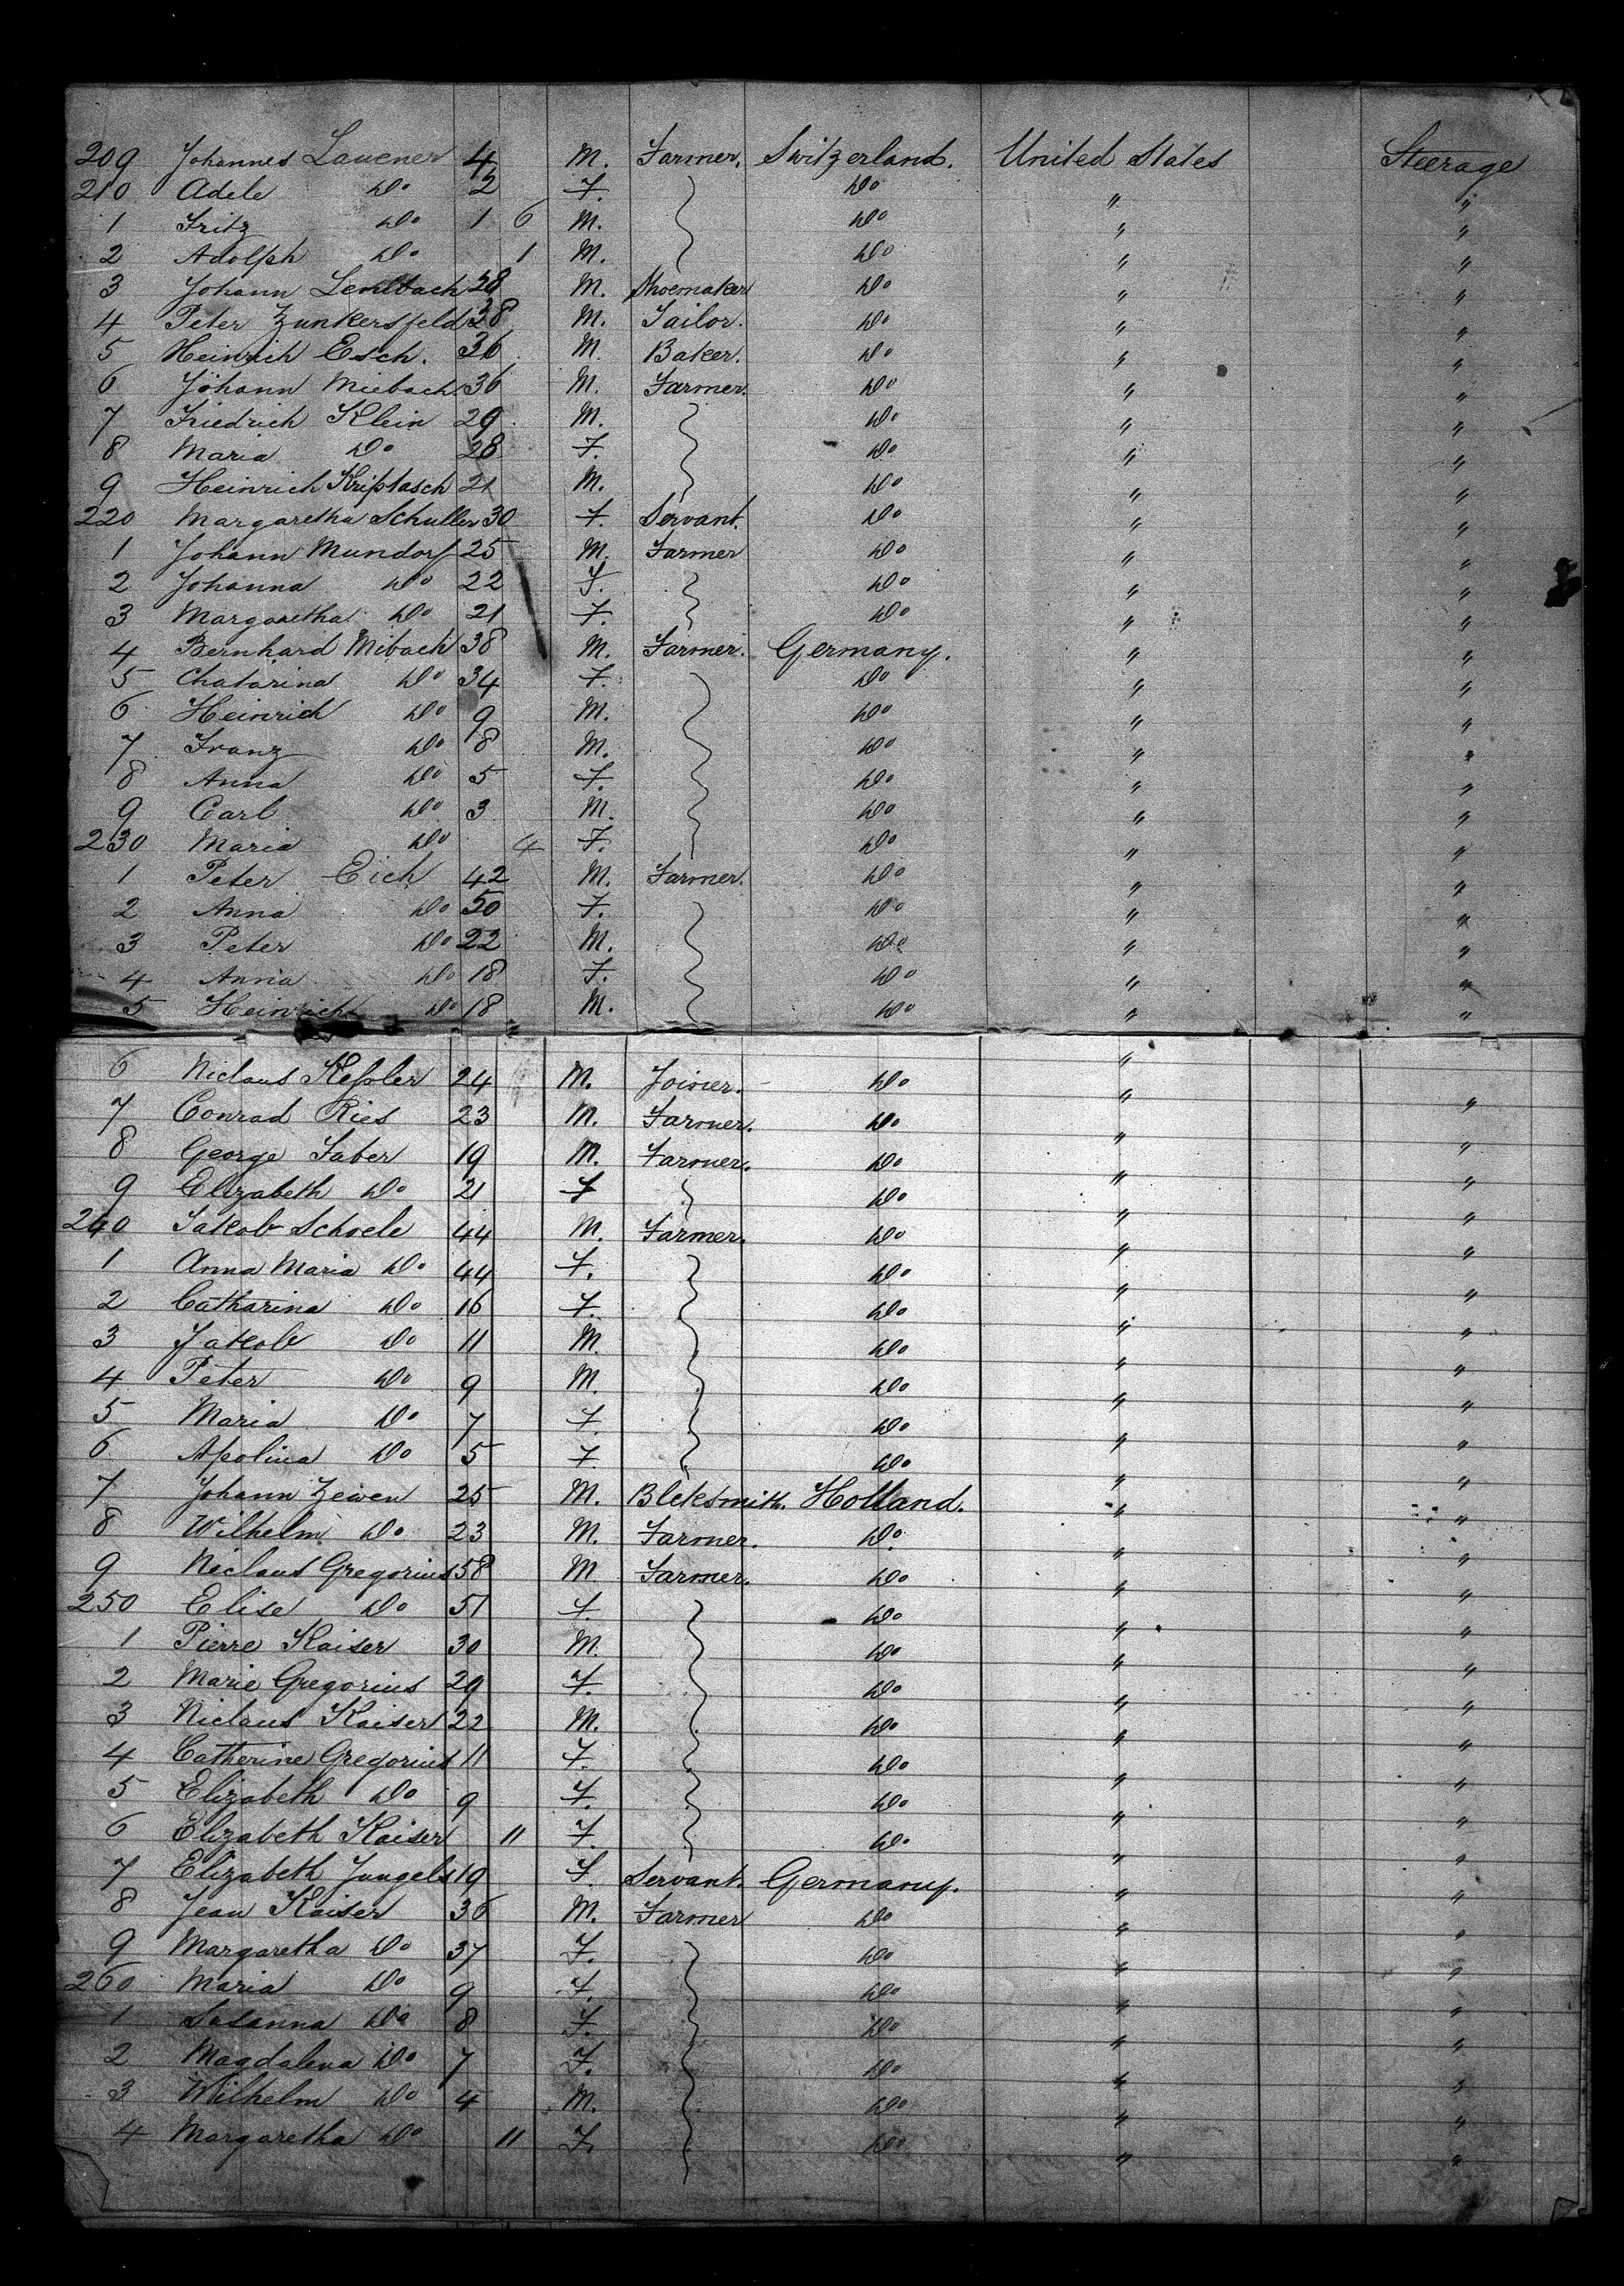 209 Johannes Lauener 4 M. Farmer. Switzerland. United States Steerage
210 Adele Do 2 F. Do " "
1 Fritz Do 1 6 M. Do " "
2 Adolph Do 1 M. Do " "
3 Johann 28 M. Shoemaker Do " "
4 Peter Zunkersfeld 38 M. Tailor. Do " "
5 Heinrich Esch. 36 M. Baker. Do " "
6 Johann Miebach 36 M. Farmer. Do " "
7 Friedrich Klein 29 M. Do " "
8 Maria Do 28 F. Do " "
9 Heinrich 21 M. Do " "
220 Margaretha Schuller 30 F. Servant. Do " "
1 Johann Mundorf 25 M. Farmer Do " "
2 Johanna Do 22 F. Do " "
3 Margaretha Do 21 F. Do " "
4 Bernhard Mibach 38 M. Farmer. Germany. " "
5 Chatarina Do 34 F. Do " "
6 Heinrich Do 9 M. Do " "
7 Franz Do 8 M. Do " "
8 Anna Do 5 F. Do " "
9 Carl Do 3 M. Do " "
230 Maria Do 4 F. Do " "
1 Peter Eich 42 M. Farmer. Do " "
2 Anna Do 50 F. Do " "
3 Peter Do 22 M. Do " "
4 Anna Do 18 F. Do " "
5 Heinrich Do 18 M. Do " "
6 Niclaus Keßler 24 M. Joiner. Do " "
7 Conrad Ries 23 M. Farmer. Do " "
8 George Faber 19 M. Farmer. Do " "
9 Elizabeth Do 21 F Do " "
240 Jakob Schoele 44 M. Farmer. Do " "
1 Anna Maria Do 44 F. Do " "
2 Catharina Do 16 F. Do " "
3 Jakob Do 11 M. Do " "
4 Peter Do 9 M. Do " "
5 Maria Do 7 F. Do " "
6 Apolina Do 5 F. Do " "
7 Johann Zewen 25 M. Blcksmith. Holland. " "
8 Wilhelm Do 23 M. Farmer. Do " "
9 Niclaus Gregorius 58 M. Farmer. Do " "
250 Elise Do 51 F. Do " "
1 Pierre Kaiser 30 M. Do " "
2 Marie Gregorius 29 F. Do " "
3 Niclaus Kaiser 22 M. Do " "
4 Catherine Gregorius 11 F. Do " "
5 Elizabeth Do 9 F. Do " "
6 Elizabeth Kaiser 11 F. Do " "
7 Elizabeth Jungels 19 F. Servant. Germany. " "
8 Jean Kaiser 36 M. Farmer Do " "
9 Margaretha Do 37 F. Do " "
260 Maria Do 9 F. Do " "
1 Susanna Do 8 F. Do " "
2 Magdalena Do 7 F. Do " "
3 Wilhelm Do 4 M. Do " "
4 Margaretha Do 11 F. Do " "